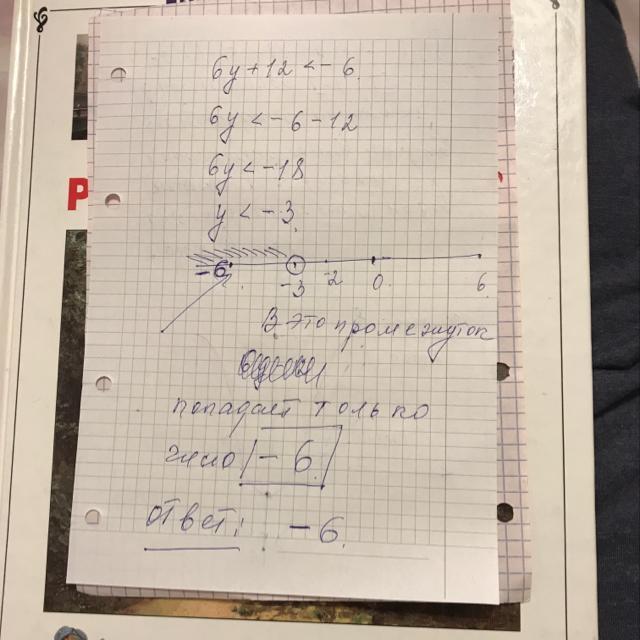 6y + 12 < - 6
6y < - 6 - 12
6y < - 18
y < - 3
- 6 - 3 - 2 0 6
В это промежуток
попадает только
число - 6
Ответ: - 6